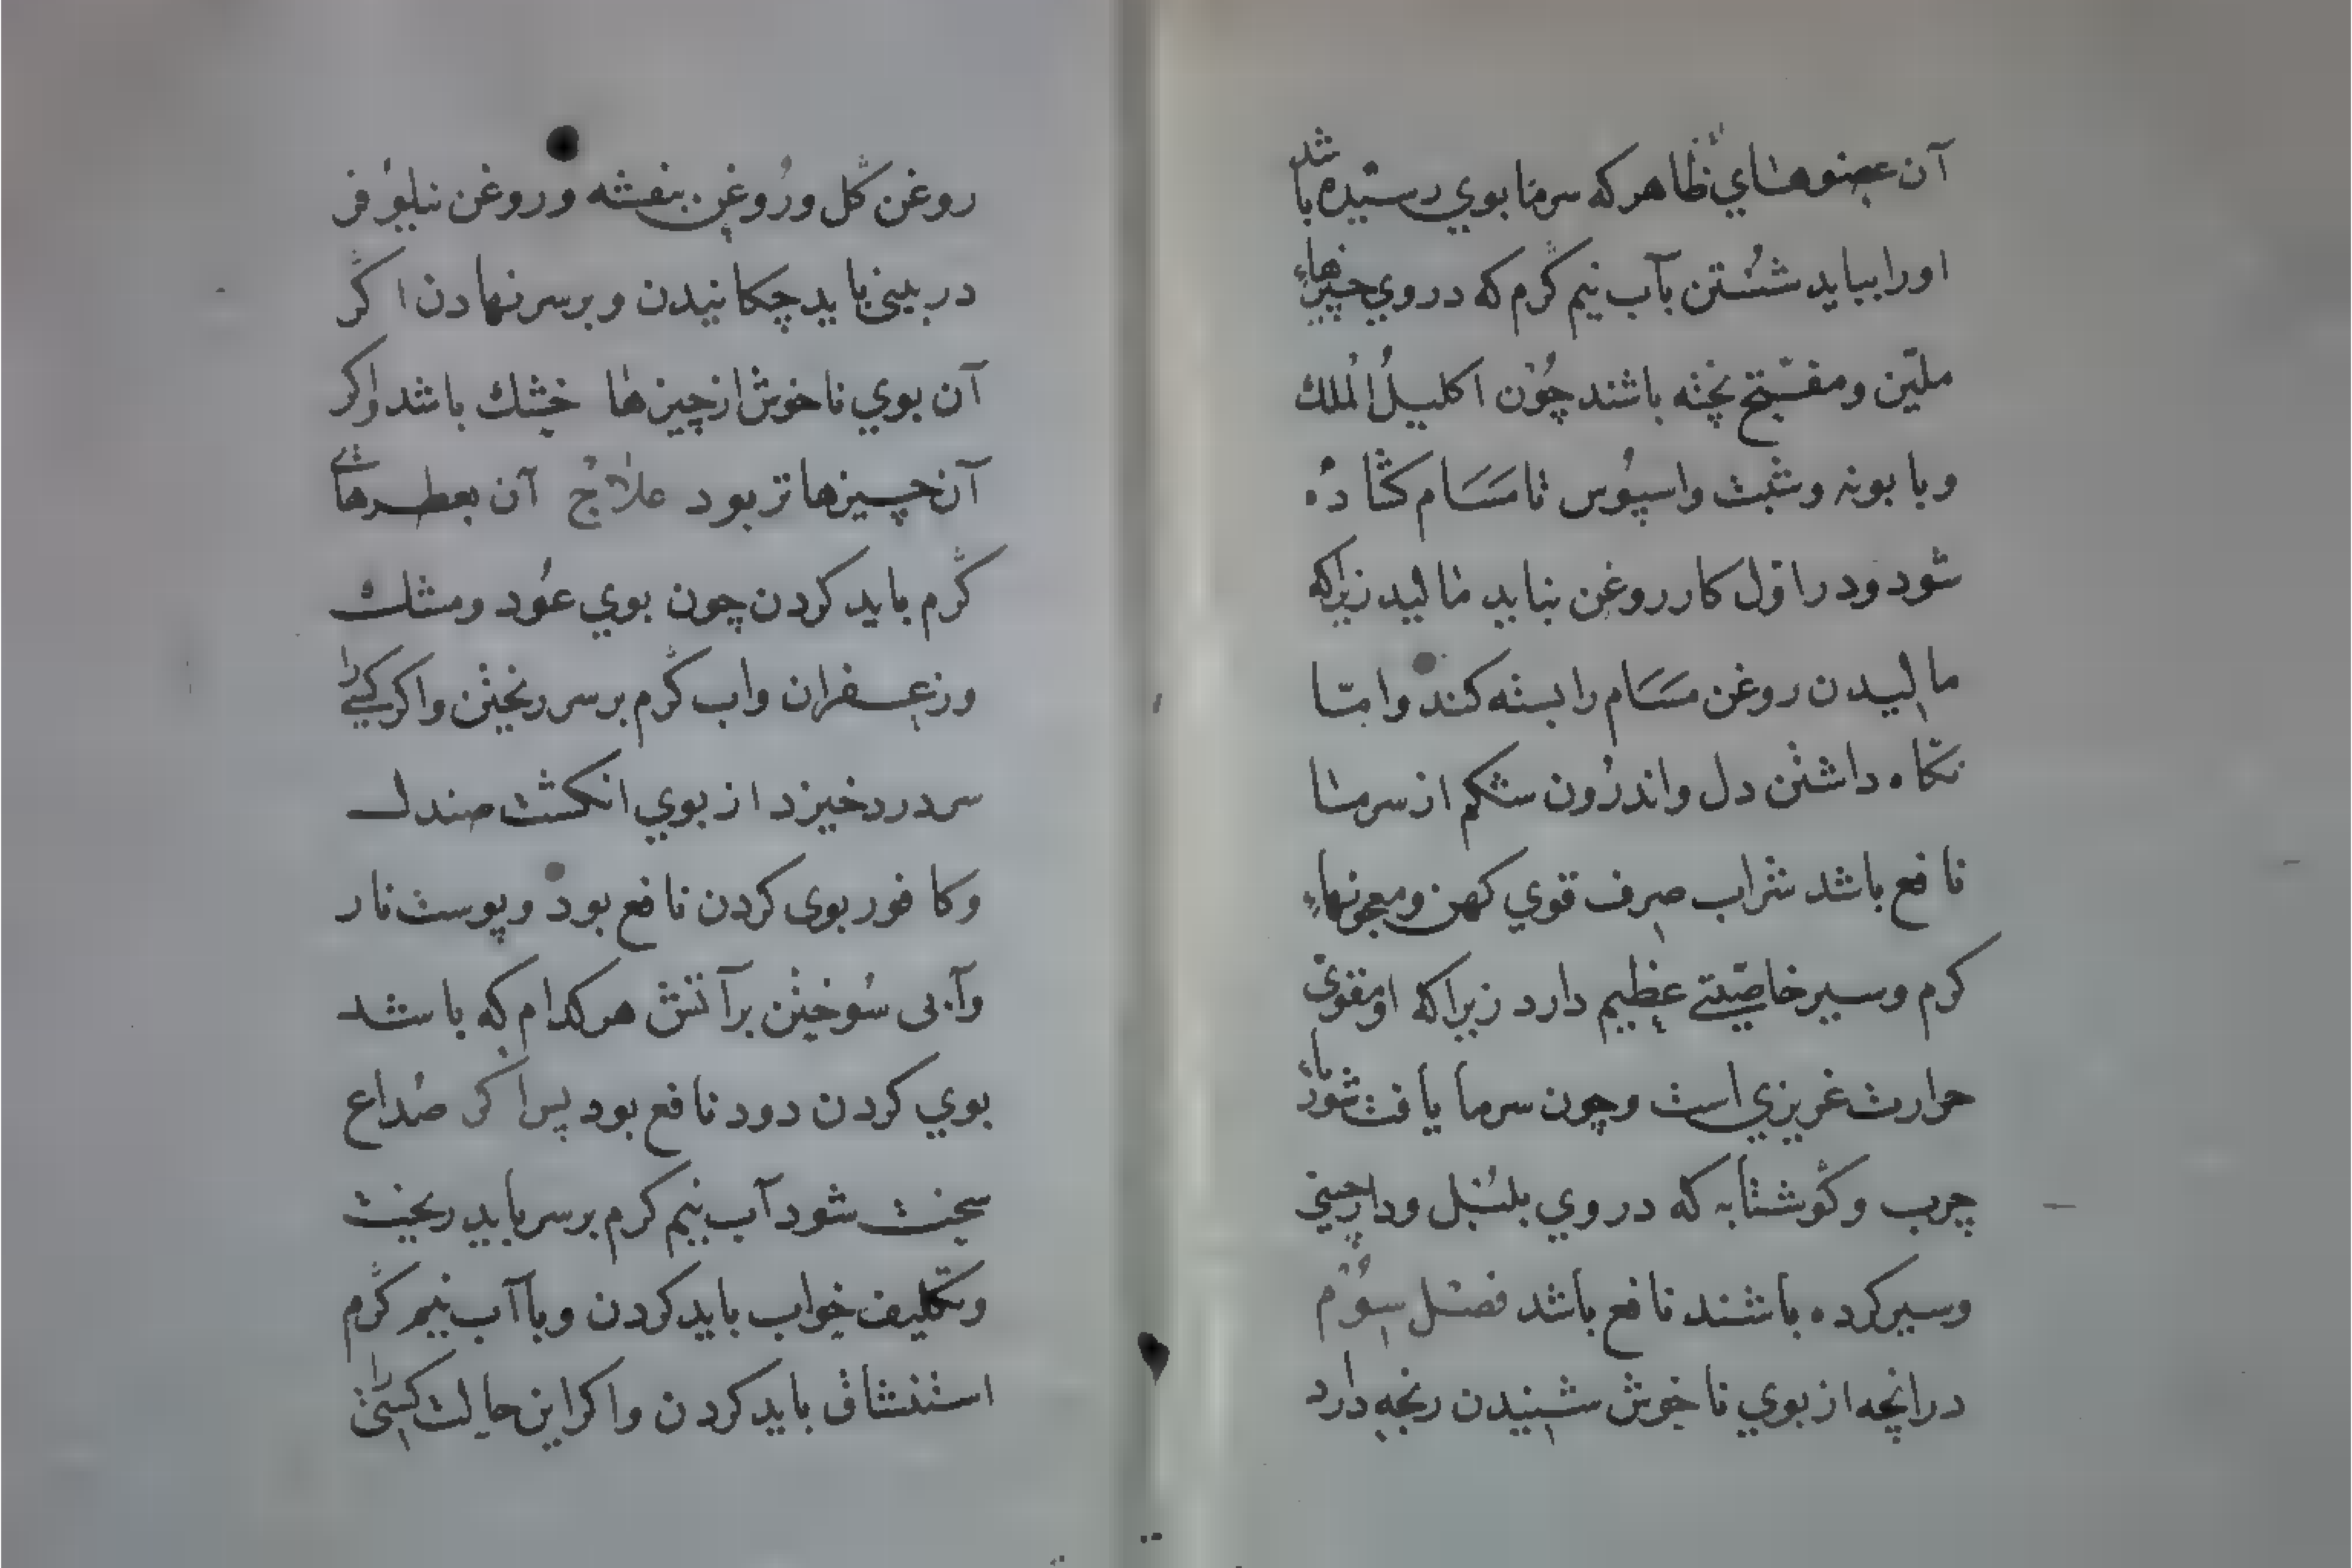 آن عضوهاي ظاهر كه سرما بوي رسيده باشد
اورا ببايد شستن بآب نيم گرم كه در وي چيزهاء
مليّن و مفتّح پخته باشند چُون اكليلُ الملك
و بابونه و شبت و اسپوس تا مَسَام كشاده
شود و در اوّل كار روغن نبايد ماليد زيراكه
ماليدن روغن مسَام را بسته كند و امّا
نگاه داشتن دل و اندرُون شكم از سرما
نافع باشد شراب صِرف قوي كهن و معجونهاء
كرم و سير خاصّيتے عظيم دارد زيراكه او مقوّي
حرارت غريزي است و چون سرما يافت شوربا
چرب و گوشتابه كه در وي پلپل و دارچيني
و سير كرده باشند نافع باشد فصل سِوُم
در انچه از بوي ناخوش شنيدن رنجه دارد
روغن گل و روغن بنفشه و روغن نيلوفر
در بيني بايد چكانيدن و بر سر نهادن اگر
آن بوي ناخوش از چيزها خشك باشد و اكر
آن چيزها تر بود علاج آن بعطرهاے
گرم بايد كردن چون بوي عُود و مشك
و زعفران و اب گرم بر سر ريختن و اكر كسے را
سر درد خيزد از بوي انكشت صندل
و كافور بوى كردن نافع بود و پوست نار
و آبى سُوختن بر آتش هر كدام كه باشد
بوي كردن دود نافع بود پس اكر صُداع
سخت شود آب نيم كرم بر سر بايد ريخت
و تكليف خواب بايد كردن و با آب نيم گرم
استنشاق بايد كردن و اكر اين حالت كسى را